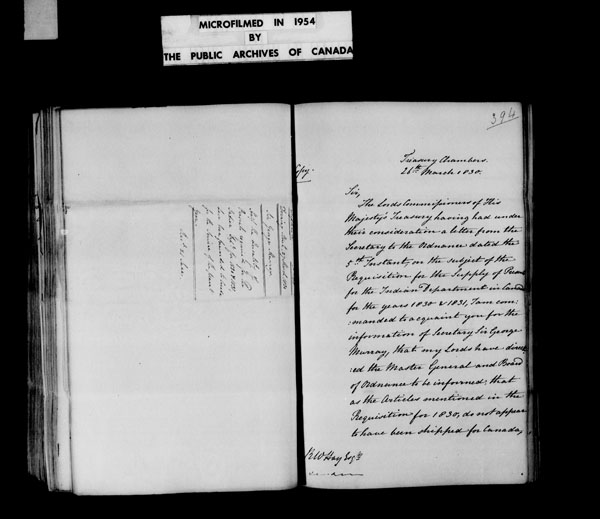 MICROFILMED IN 1954
BY
THE PUBLIC ARCHIVES OF CANADA
394
Copy.
Treasury Chambers.
26th March 1830.
Sir,
The Lords Commissioners of His
Majesty's Treasury having had under
their consideration a letter from the
Secretary to the Ordnance dated the
5th Instant, on the subject of the
Requisition for the Supply of
for the Indian Department in
for the years 1830 & 1831, I am com:
:manded to acquaint you for the
information of Secretary Sir George
Murray, that my Lords have
:ed the Master General and Board
of Ordnance to be informed, that
as the Articles mentioned in the
Requisition for 1830, do not appear
to have been shipped for Canada,
R W Hay Esqre
Sir George Murray